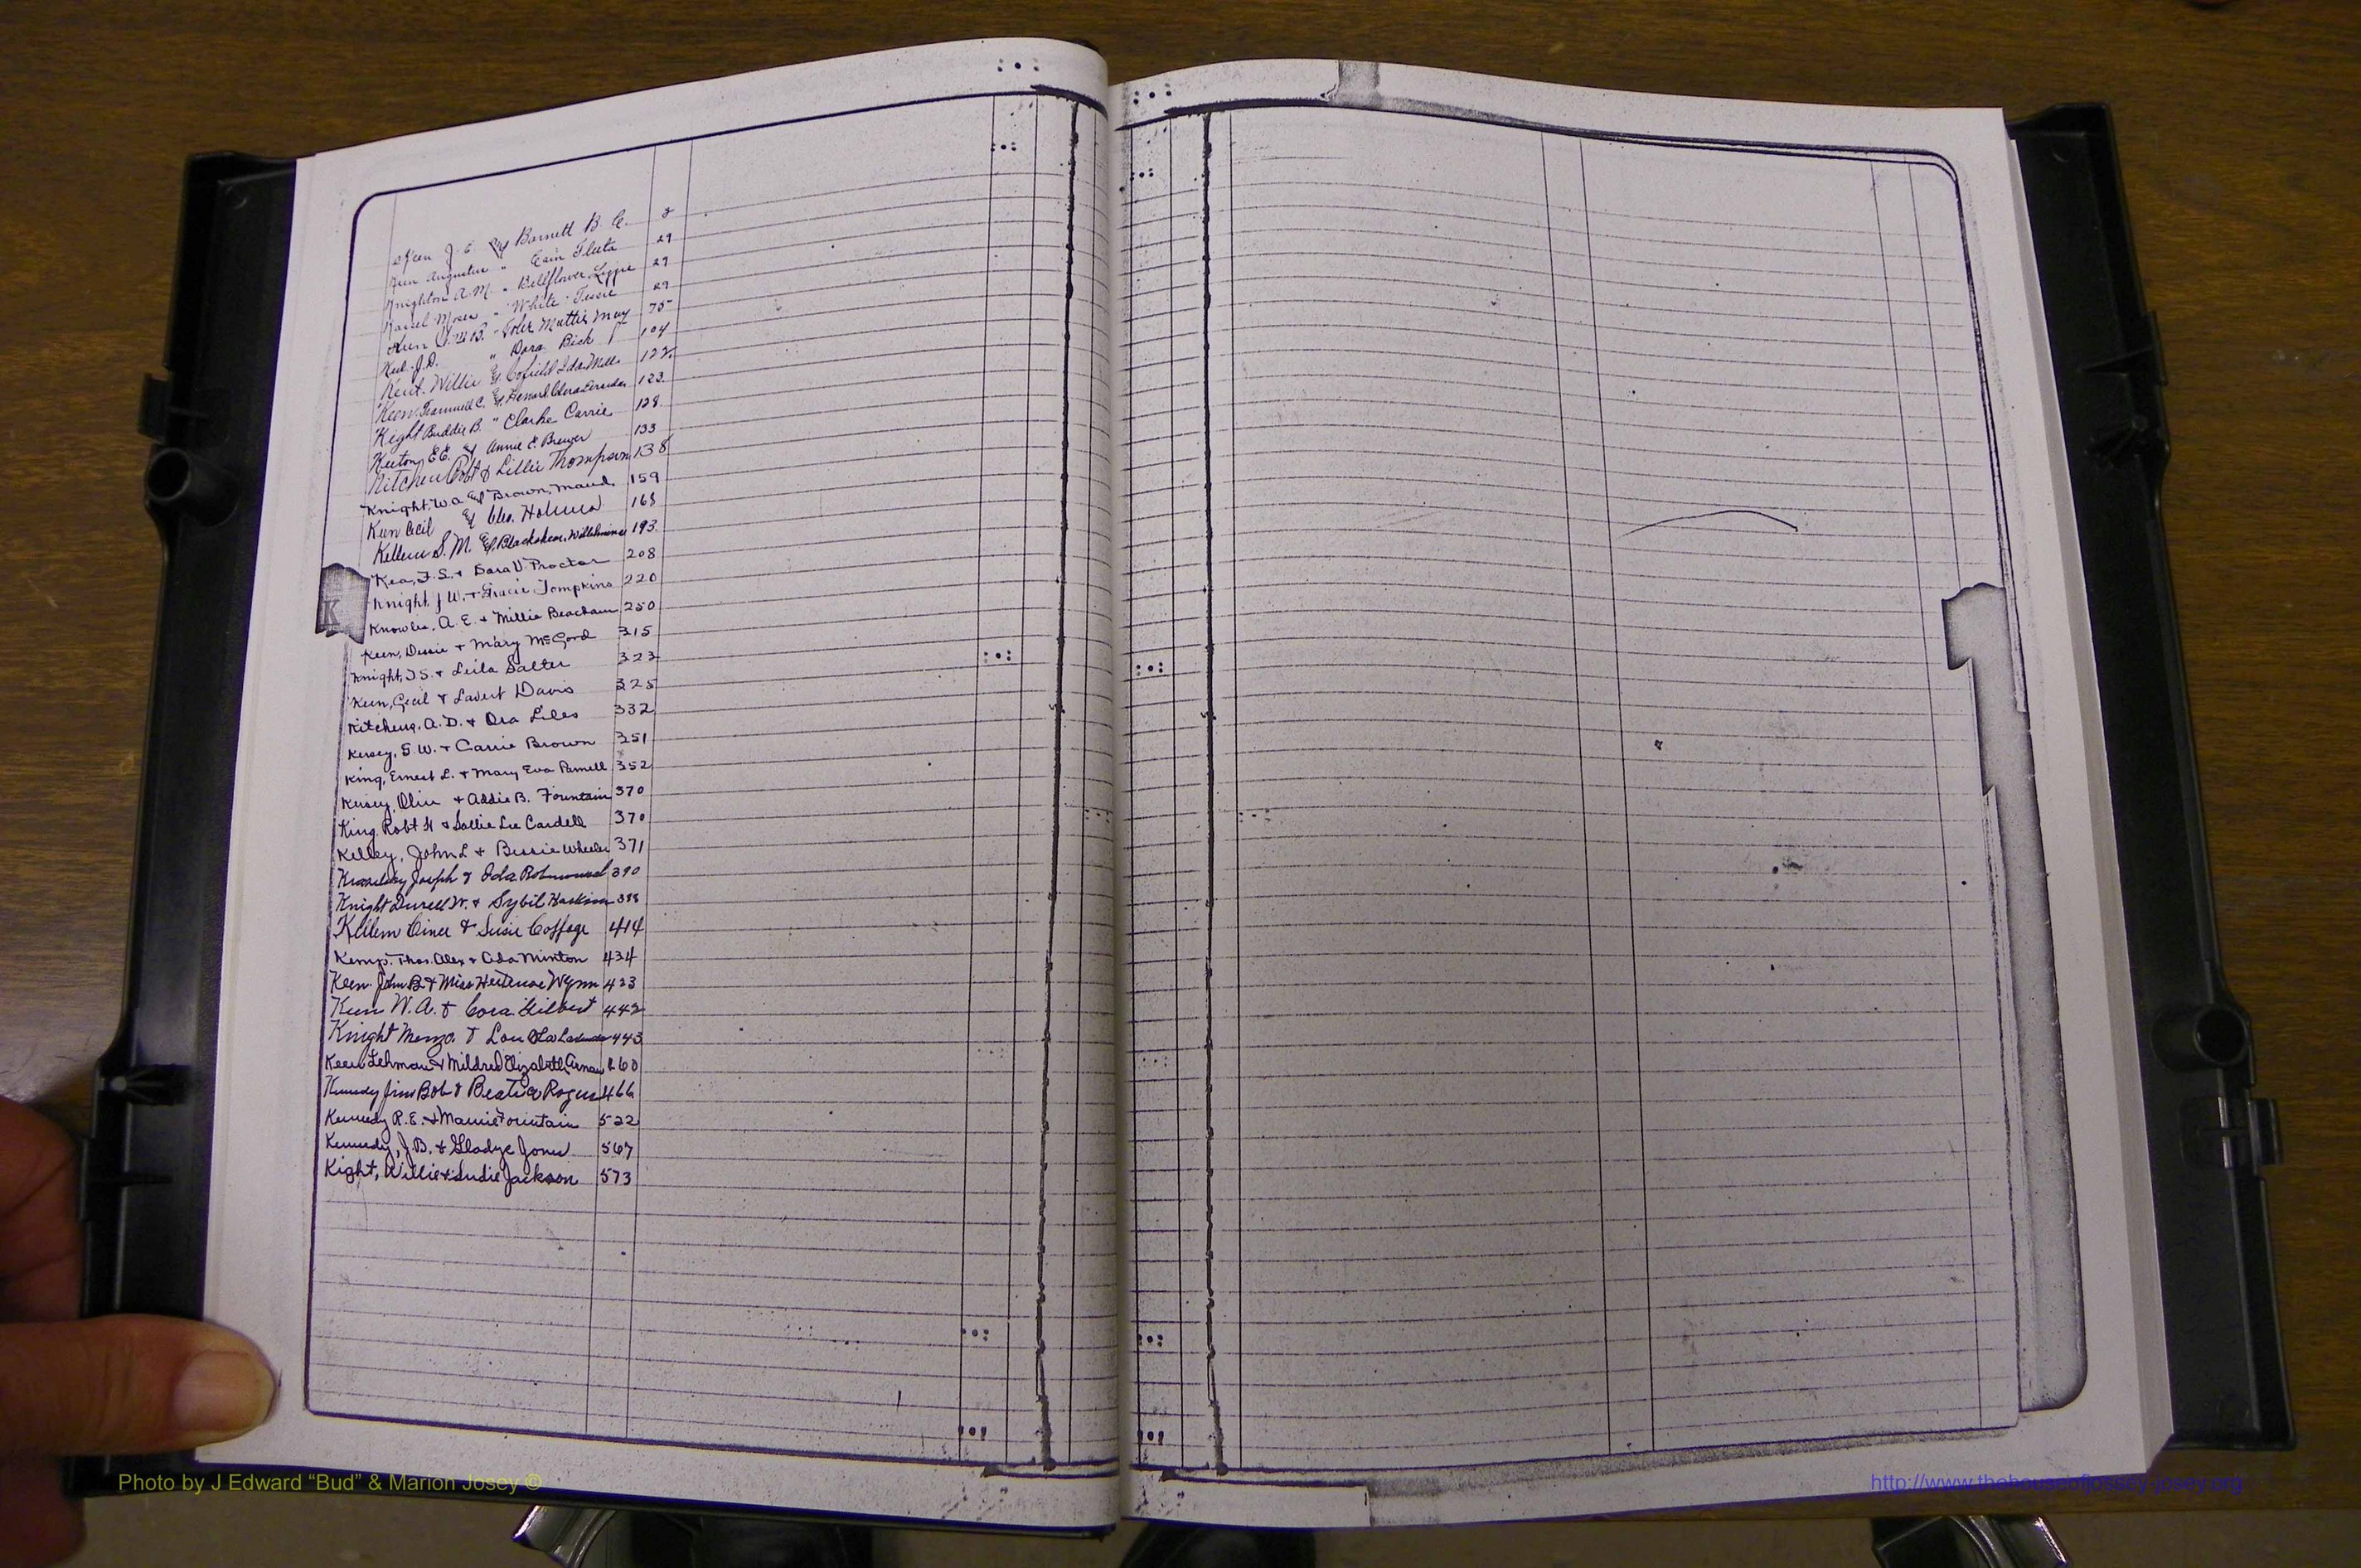 Keen J. E. & Barnett B. C. 8
Keen Augustus " Cain Fleeta 29
Knighton A. M. " Bellflower Lizzie 29
Moses " White Jessie 29
Keen " Mattie May 75
J. D. " Dora Bick 104
Kent. Willie & Ida Mell 122
Keen, C. & 123
Kight Buddie B. " Clarke Carrie 128
Keeton E E. & Annie E. Brewer 133
Kitchen Robt & Lillie Thompson 138
Knight, W. A & Brown, Maud 159
Keen Cecil & Cleo. 168
Kellem S. M. & Blackshear, Willhelmina 193
Kea, F. S. + Dora V. Proctor 208
Knight, J W. + Gracie Tompkins 220
Knowles, A. E. + Millie Beacham 250
Keen, Dessie + Mary McCord 315
Knight, J S. + Leila Salter 323
Keen, Cecil + Lavert Davis 325
Kitchens, A. D. + Ora Liles 332
Kersey, G. W. + Carrie Brown 351
King, Ernest L. + Mary Eva Parnell 352
Kersey, Olin + Addie B. Fountain 370
King, Robt H + Sallie Lee Cardell 370
Kelley, John L + Bessie Wheeler 371
Joseph & Ida 390
Knight Durell W. + Sybil
Kellem & Susie 414
Kemp, Thos. Alex + Ada Minton 434
Keen John B + Miss Hortense Wynn 423
Keen W. A. & Cora Gilbert 442
Knight & Lou 443
Keen Lehman + Mildred Elizabeth 460
Kennedy Jim Bob & Beatrice Rogers 466
Kennedy R. E. + Mamie Fountain 522
Kennedy, J. B. + Gladys Jones 567
Kight, Willie + Sudie Jackson 573
K
Photo by J Edward “Bud” & Marion Josey ©
http://www.thehouseofjossey-josey.org